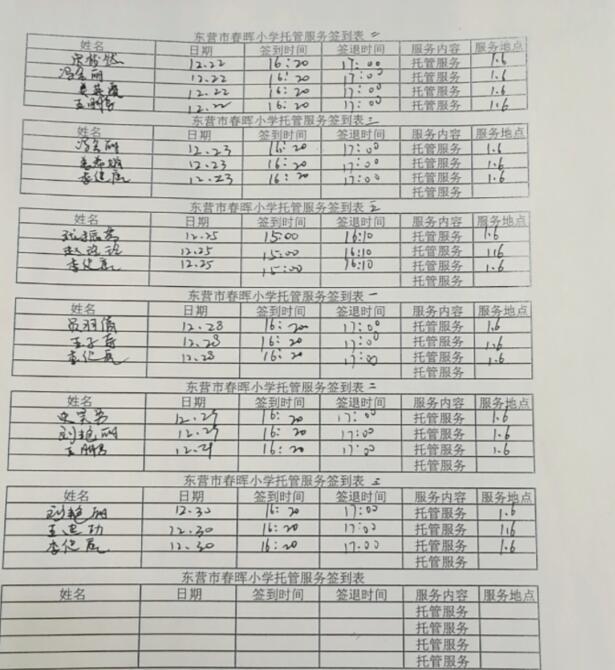 东营市春晖小学托管服务签到表 二
姓名 日期 签到时间 签退时间 服务内容 服务地点
12.22 16:20 17:00 托管服务 1.6
冯金丽 12.22 16:20 17:00 托管服务 1.6
12.22 16:20 17:00 托管服务 1.6
12.22 16:20 17:00 托管服务 1.6
东营市春晖小学托管服务签到表 三
姓名 日期 签到时间 签退时间 服务内容 服务地点
冯金丽 12.23 16:20 17:00 托管服务 1.6
12.23 16:20 17:00 托管服务 1.6
12.23 16:20 17:00 托管服务 1.6
托管服务
东营市春晖小学托管服务签到表 五
姓名 日期 签到时间 签退时间 服务内容 服务地点
12.25 15:00 16:10 托管服务 1.6
12.25 15:00 16:10 托管服务 1.6
12.25 15:00 16:10 托管服务 1.6
托管服务
东营市春晖小学托管服务签到表 一
姓名 日期 签到时间 签退时间 服务内容 服务地点
12.28 16:20 17:00 托管服务 1.6
12.28 16:20 17:00 托管服务 1.6
12.28 16:20 17:00 托管服务 1.6
托管服务
东营市春晖小学托管服务签到表 二
姓名 日期 签到时间 签退时间 服务内容 服务地点
12.29 16:20 17:00 托管服务 1.6
刘艳丽 12.29 16:20 17:00 托管服务 1.6
12.29 16:20 17:00 托管服务 1.6
托管服务
东营市春晖小学托管服务签到表 三
姓名 日期 签到时间 签退时间 服务内容 服务地点
刘艳丽 12.30 16:20 17:00 托管服务 1.6
12.30 16:20 17:00 托管服务 1.6
12.30 16:20 17.00 托管服务 1.6
托管服务
东营市春晖小学托管服务签到表
姓名 日期 签到时间 签退时间 服务内容 服务地点
托管服务
托管服务
托管服务
托管服务